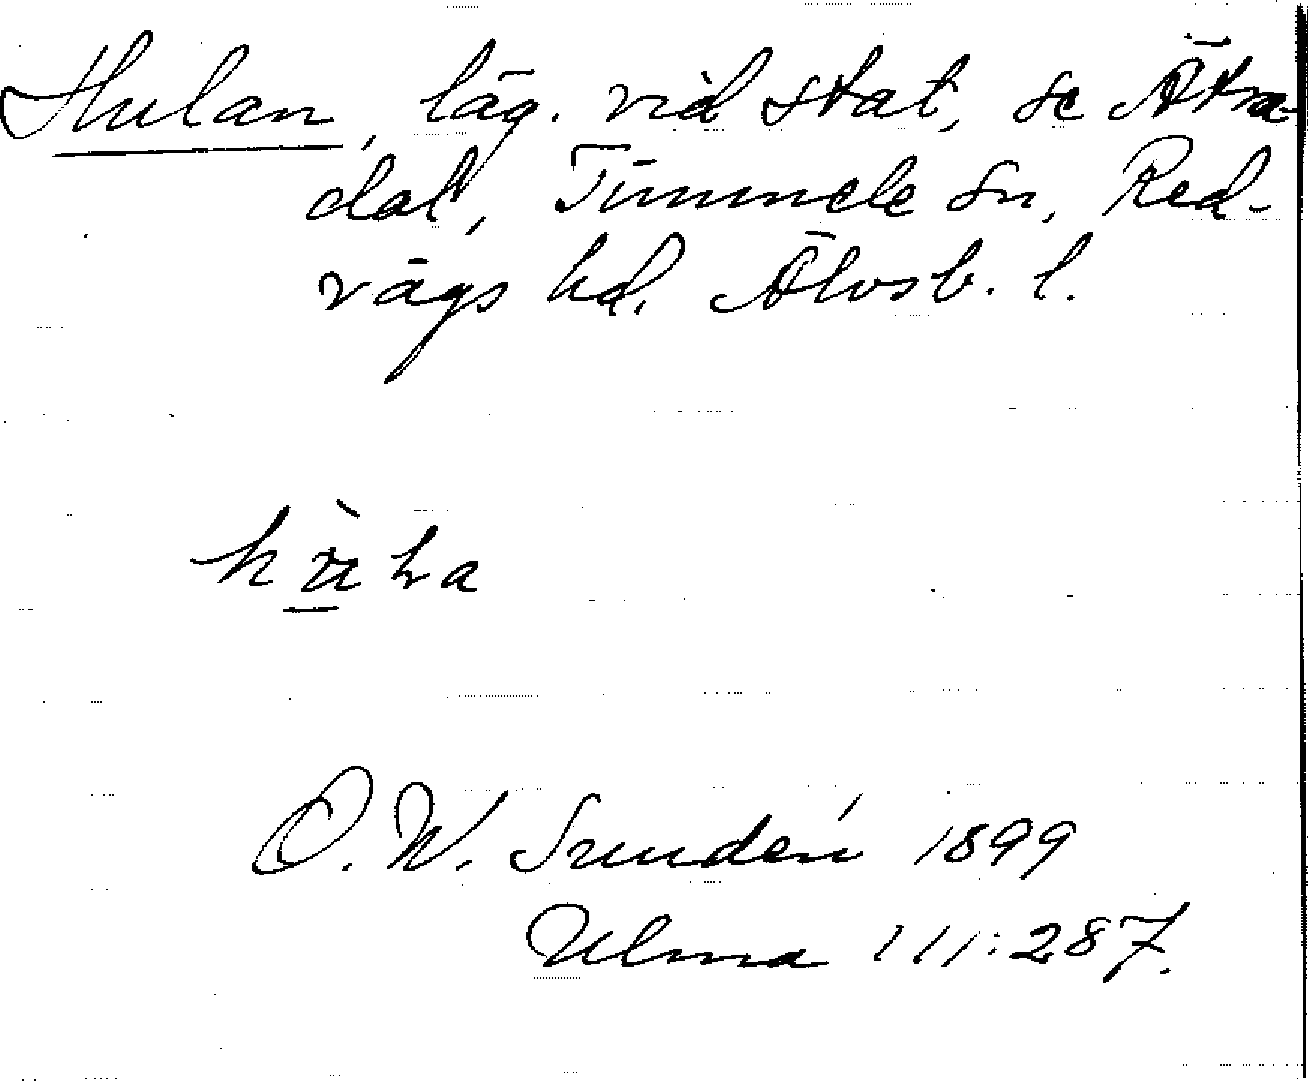 Hulan, läg. vid stat, se Ätra-
dal, Timmele sn, Red-
vägs hd, Älvsb. l.
O. W. Sundén 1899
Ulma 111:287.